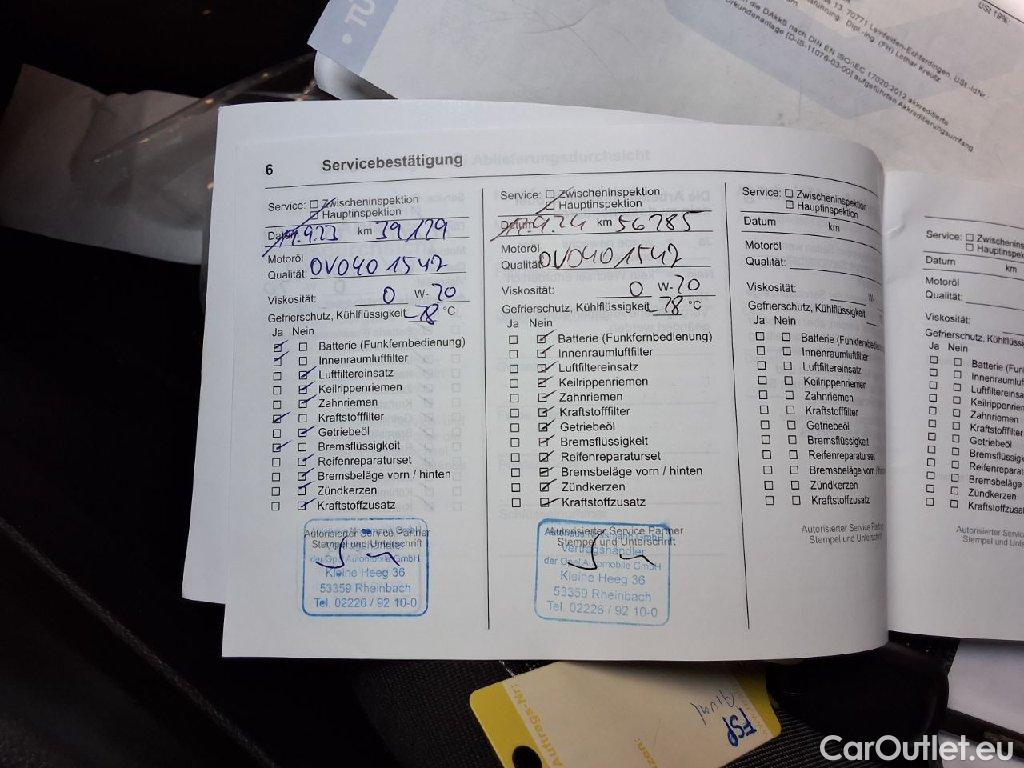 TÜ
13, 70771 Leinfelden-Echterdingen, USt-IdNr.:
Dipl.-Ing. (FH) Lothar Kreutz
die DAkkS nach DIN EN ISO/IEC 17020:2012 akkreditierte
(D-IS-11076-03-00) aufgeführten Akkreditierungsumfang.
6 Servicebestätigung
Service: Zwischeninspektion
Hauptinspektion
Datum 19.9.23 km 39129
Motoröl
Qualität: OV0401547
Viskosität: 0 W-20
Gefrierschutz, Kühlflüssigkeit -28 °C
Ja Nein
Batterie (Funkfernbedienung)
Innenraumluftfilter
Luftfiltereinsatz
Keilrippenriemen
Zahnriemen
Kraftstofffilter
Getriebeöl
Bremsflüssigkeit
Reifenreparaturset
Bremsbeläge vorn / hinten
Zündkerzen
Kraftstoffzusatz
Autorisierter Service Partner
Stempel und Unterschrift
der Opel Automobile GmbH
Kleine Heeg 36
53359 Rheinbach
Tel. 02226 / 92 10-0
Service: Zwischeninspektion
Hauptinspektion
Datum 9.24 km 56785
Motoröl
Qualität: OV0401547
Viskosität: 0 W-20
Gefrierschutz, Kühlflüssigkeit -28 °C
Ja Nein
Batterie (Funkfernbedienung)
Innenraumluftfilter
Luftfiltereinsatz
Keilrippenriemen
Zahnriemen
Kraftstofffilter
Getriebeöl
Bremsflüssigkeit
Reifenreparaturset
Bremsbeläge vorn / hinten
Zündkerzen
Kraftstoffzusatz
Autorisierter Service Partner
Stempel und Unterschrift
Vertragshändler
der Opel Automobile GmbH
Kleine Heeg 36
53359 Rheinbach
Tel. 02226 / 92 10-0
Service: Zwischeninspektion
Hauptinspektion
Datum km
Motoröl
Qualität:
Viskosität: W-
Gefrierschutz, Kühlflüssigkeit
Ja Nein
Batterie (Funkfernbedienung)
Innenraumluftfilter
Luftfiltereinsatz
Keilrippenriemen
Zahnriemen
Kraftstofffilter
Getriebeöl
Bremsflüssigkeit
Reifenreparaturset
Bremsbeläge vorn / hinten
Zündkerzen
Kraftstoffzusatz
Autorisierter Service Partner
Stempel und Unterschrift
Service: Zwischeninspe
Hauptinspe
Datum km
Motoröl
Qualität:
Viskosität:
Gefrierschutz, Kühlflüssi
Ja Nein
Batterie (Fun
Innenraumluft
Luftfiltereinsa
Keilrippenriem
Zahnriemen
Kraftstofffilter
Getriebeöl
Bremsflüssig
Reifenrepara
Bremsbeläge
Zündkerzen
Kraftstoffzus
Autorisierter Service
Stempel und Unters
Auftrags-Nr.:
FSP
CarOutlet.eu